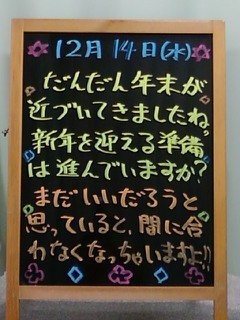 12月14日(水)
だんだん年末が
近づいてきましたね。
新年を迎える準備
は進んでいますか?
まだいいだろうと
思っていると、間に合
わなくなっちゃいますよ!!